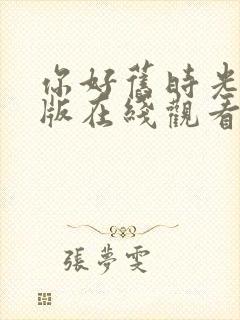 你好舊時光
版在綫觀看
張夢雯